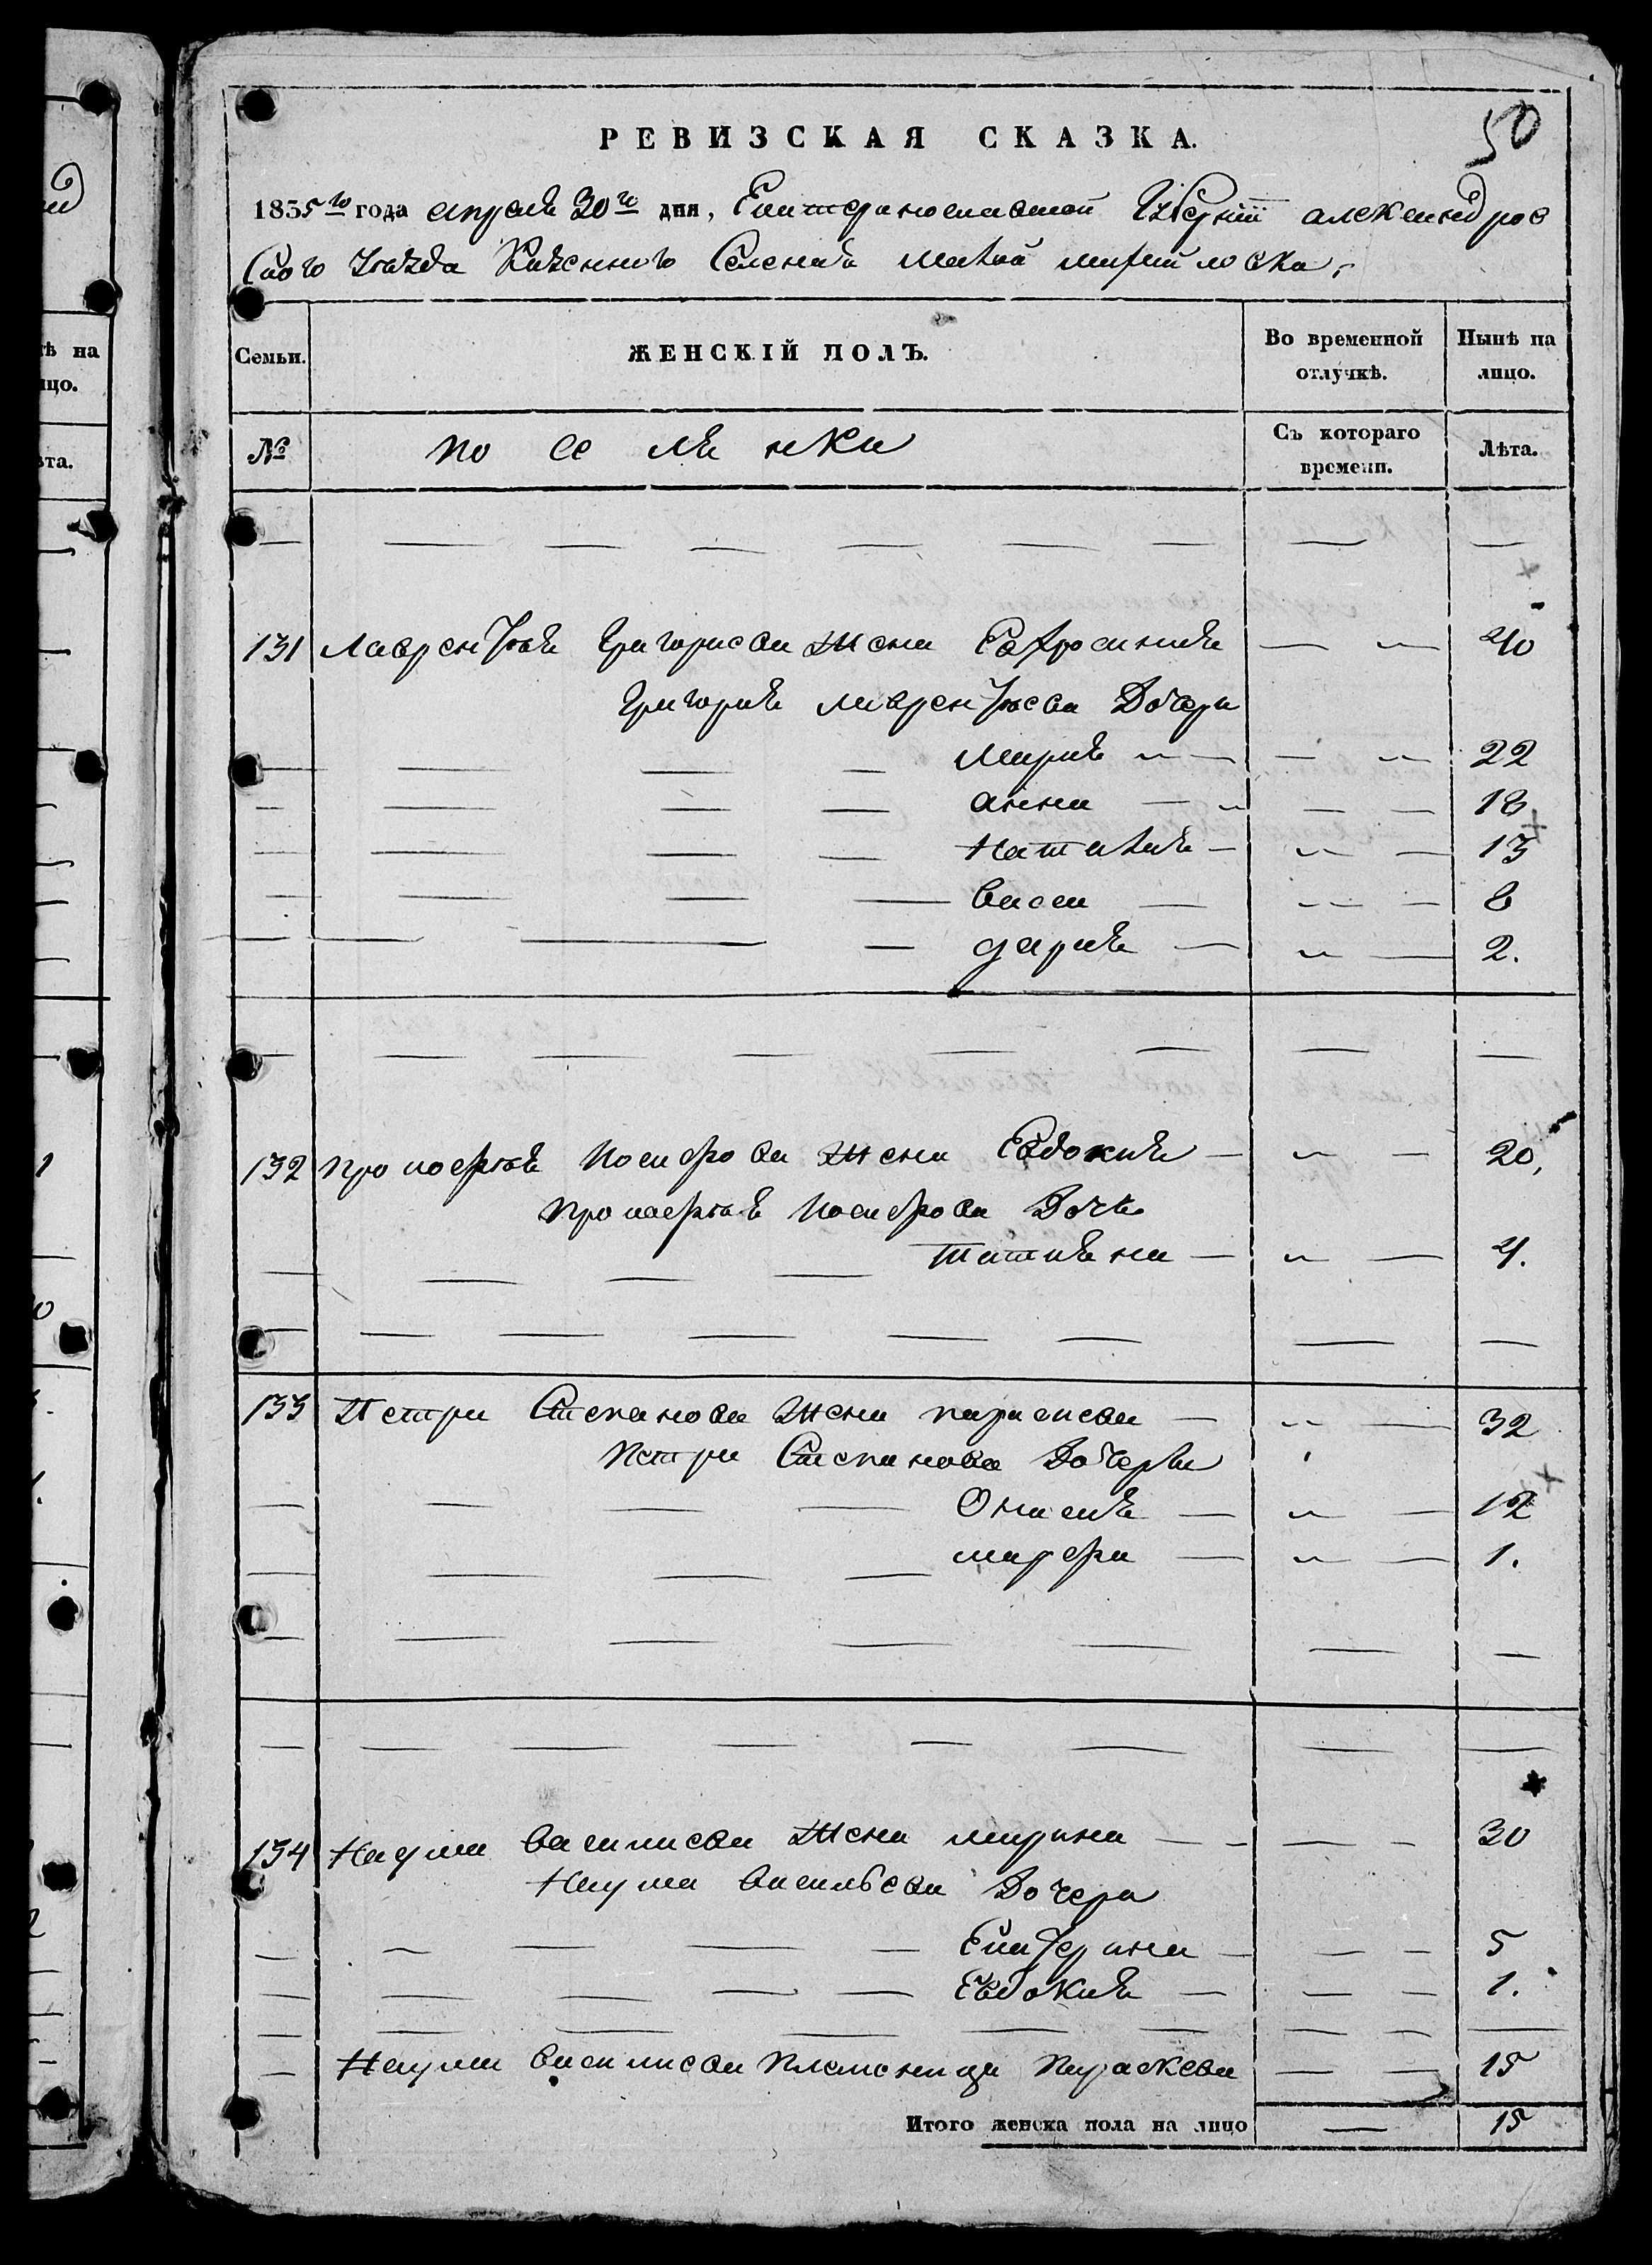 50
РЕВИЗСКАЯ СКАЗКА.
1835го года апреля 30го дня, Екатеринославской Губернии александров
Ского уезда Казенного Селения малой михайловки,
Семьи. ЖЕНСКІЙ ПОЛЪ. Во временной отлучкѣ. Нынѣ на лицо.
№ по се ля нки Съ котораго времени. Лѣта.
131 Лаврентья Григориева Жена Ефросиния 40
Григория лаврентьева Дочери
Мария 22
анна 18
Наталия 13
Васса 8
дария 2.
132 Прокофья Иосифова Жена Евдокия 20,
Прокофья Иосифова Дочь
Татияна 4.
133 Петра Степанова Жена параскева 32
Петра Степанова Дочери
Онисия 12
марфа 1.
134 Наума Василиева Жена марина 30
Наума Васильева Дочери
Екатерина 5
Евдокия 1.
Наума Василиева Племеница Параскева 15
Итого женска пола на лицо 15